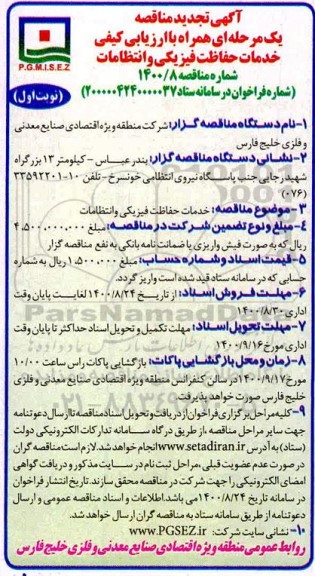 آگهی تجدید مناقصه
یک مرحله ای همراه با ارزیابی کیفی
خدمات حفاظت فیزیکی و انتظامات
شماره مناقصه ۱۴۰۰/۸
(شماره فراخوان در سامانه ستاد ۲۰۰۰۰۰۴۲۴۰۰۰۰۳۷)
P.G.M.I.S.E.Z
(نوبت اول)
۱-نام دستگاه مناقصه گزار: شرکت منطقه ویژه اقتصادی صنایع معدنی
و فلزی خلیج فارس
۲- نشانی دستگاه مناقصه گزار: بندرعباس - کیلومتر ۱۳ بزرگراه
شهید رجایی جنب پاسگاه نیروی انتظامی خونسرخ- تلفن ۱۰-۳۳۵۹۲۲۰۱
(۰۷۶)
۳-موضوع مناقصه: خدمات حفاظت فیزیکی وانتظامات
۴-مبلغ و نوع تضمین شرکت در مناقصه: مبلغ ۴,۵۰۰,۰۰۰,۰۰۰
ریال که به صورت فیش واریزی یا ضمانت نامه بانکی به نفع مناقصه گزار
۵-قیمت اسناد و شماره حساب: مبلغ ۱,۵۰۰,۰۰۰ ریال به شماره
حسابی که در سامانه ستاد قید شده است واریز گردد.
۶-مهلت فروش اسناد: از تاریخ ۱۴۰۰/۸/۲۴ لغایت پایان وقت
اداری ۱۴۰۰/۸/۳۰
۷-مهلت تحویل اسناد: مهلت تکمیل و تحویل اسناد حداکثر تا پایان وقت
اداری مورخ ۱۴۰۰/۹/۱۶
۸-زمان و محل بازگشایی پاکات: بازگشایی پاکات راس ساعت ۱۰/۰۰
مورخ ۱۴۰۰/۹/۱۷ در سالن کنفرانس منطقه ویژه اقتصادی صنایع معدنی و فلزی
خلیج فارس صورت خواهد پذیرفت
۹-کلیه مراحل برگزاری فراخوان از دریافت و تحویل اسناد مناقصه تا ارسال دعوتنامه
جهت سایر مراحل مناقصه، از طریق درگاه سامانه تدارکات الکترونیکی دولت
(ستاد) به آدرس www.setadiran.ir انجام خواهد شد. لازم است مناقصه گران
در صورت عدم عضویت قبلی، مراحل ثبت نام در سایت مذکور و دریافت گواهی
امضای الکترونیکی را جهت شرکت در مناقصه محقق سازند. تاریخ انتشار فراخوان
در سامانه تاریخ ۱۴۰۰/۸/۲۴ می باشد. اطلاعات و اسناد مناقصه عمومی و ارسال
دعوتنامه از طریق سامانه ستاد به مناقصه گران ارسال خواهد شد.
۱۰- نشانی سایت شرکت: www.PGSEZ.ir
روابط عمومی منطقه ویژه اقتصادی صنایع معدنی و فلزی خلیج فارس